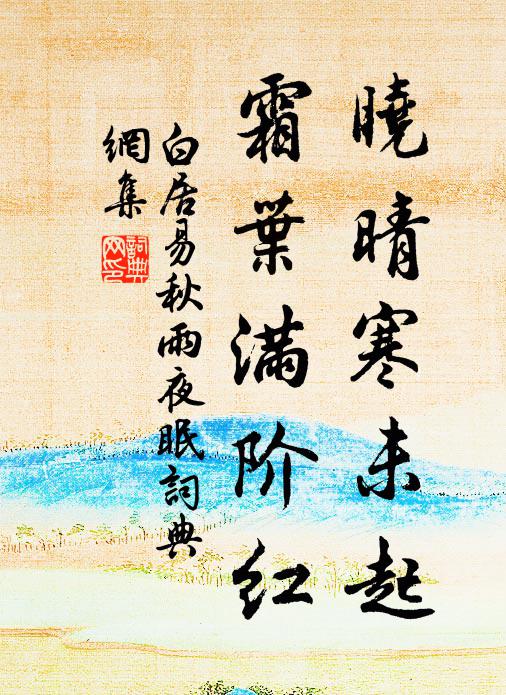 曉晴寒未起
霜葉滿阶红
白居易秋雨夜眠詞典
網集
詞典网印